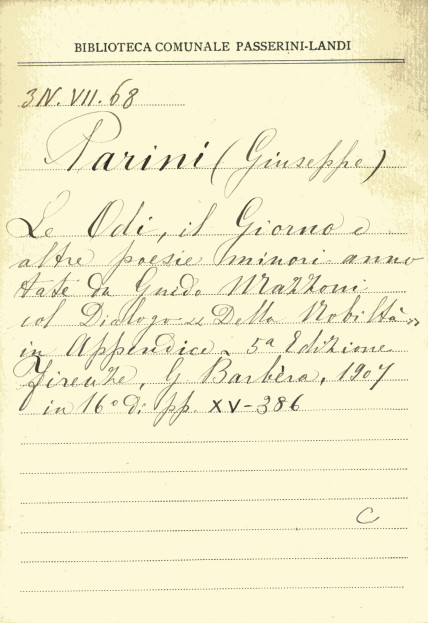 BIBLIOTECA COMUNALE PASSERINI-LANDI
3N.VII.68
Parini (Giuseppe)
Le Odi, il Giorno e
altre poesie minori anno
tate da Guido Mazzoni
col Dialogo « Della Nobiltà »
in Appendice. 5ª Edizione
Firenze, G Barbèra, 1907
in 16º di pp. XV-386
C